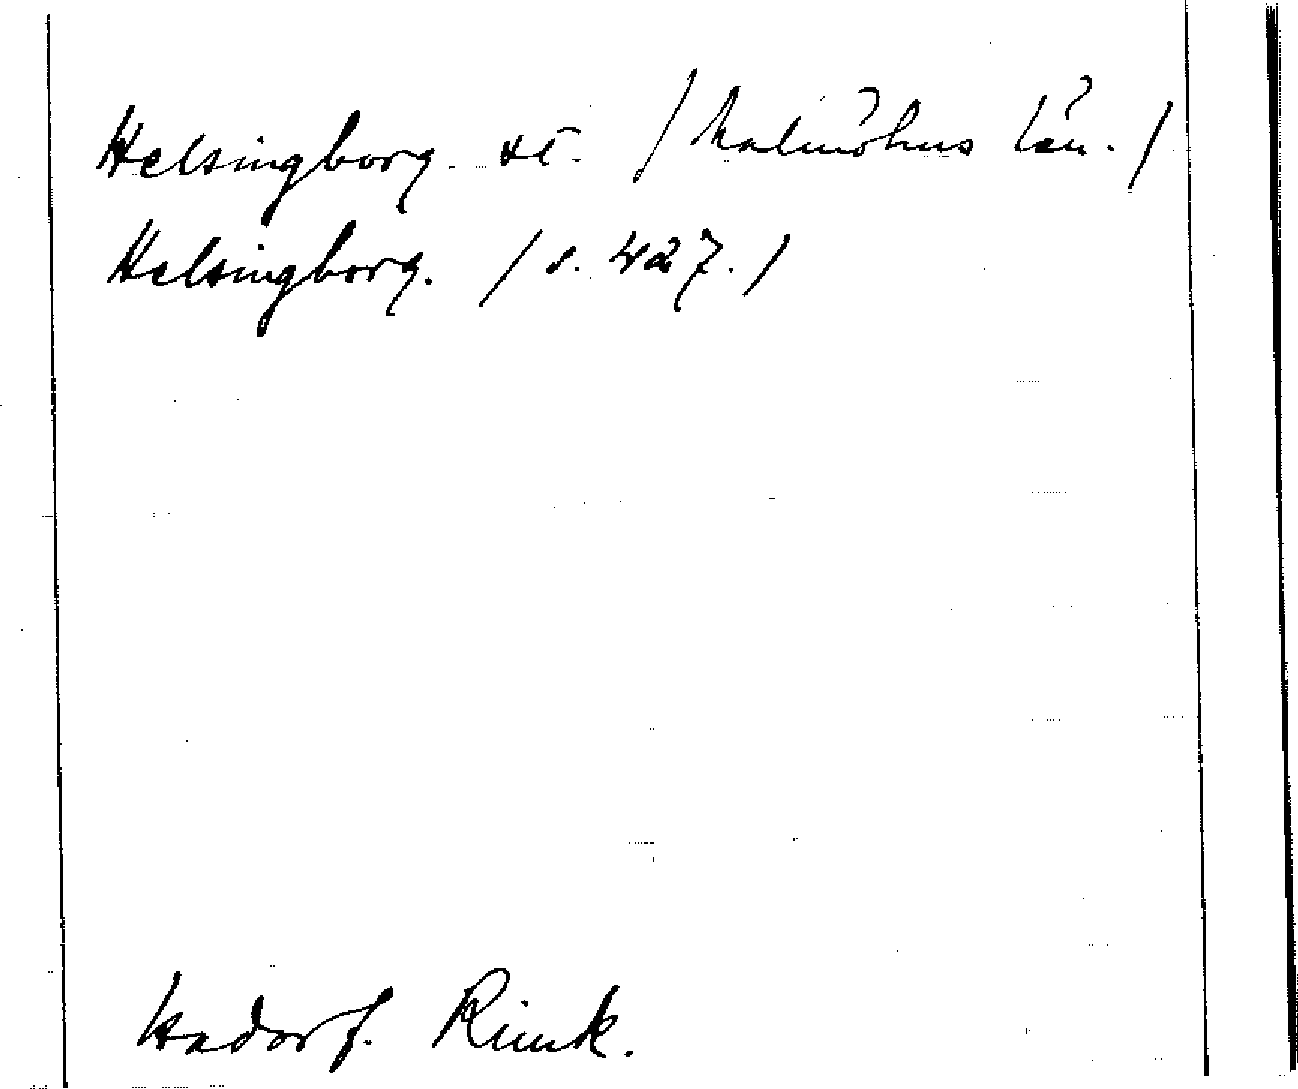 Helsingborg. st. /Malmöhus län./
Helsingborg. /s. 427./
Hadorf. Rimk.